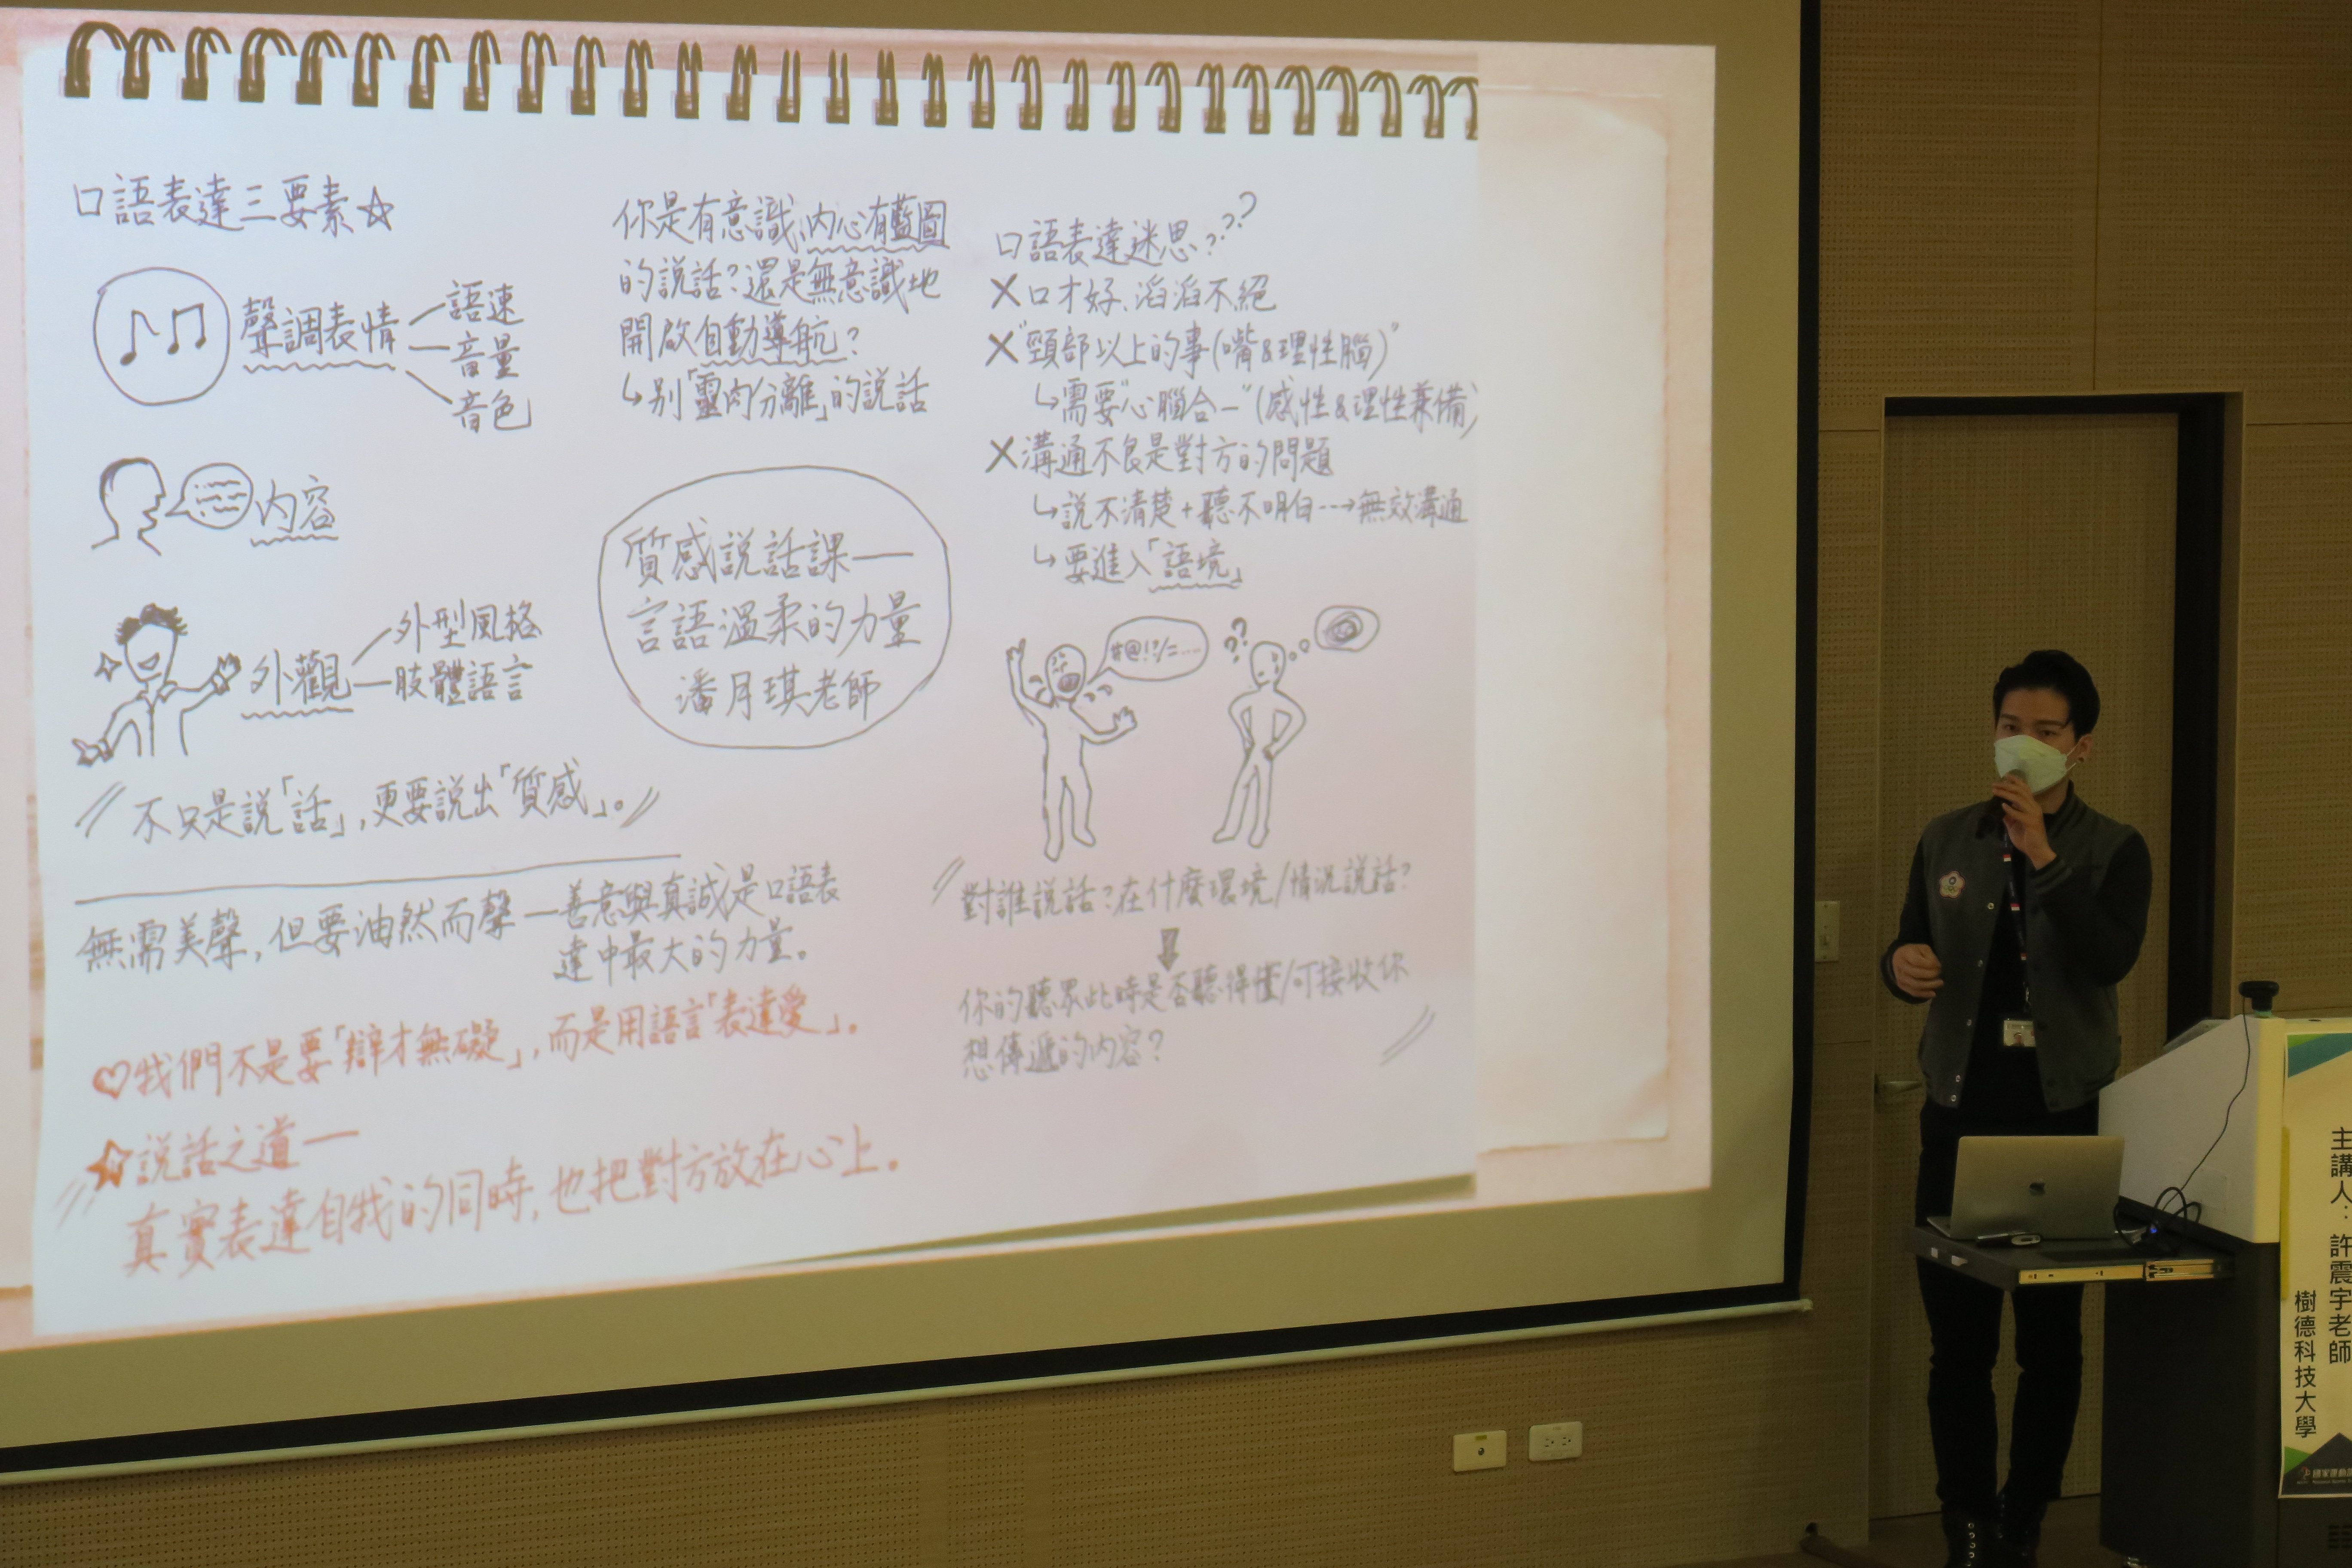 口語表達三要素☆
聲調表情
語速
音量
音色
內容
外觀
外型風格
肢體語言
不只是說「話」,更要說出「質感」。
你是有意識、內心有藍圖
的說話?還是無意識地
開啟自動導航?
↳別「靈肉分離」的說話
質感說話課——
言語溫柔的力量
潘月琪老師
口語表達迷思????
✗口才好、滔滔不絕
✗"頸部以上的事(嘴&理性腦)"
↳需要"心腦合一"(感性&理性兼備)
✗溝通不良是對方的問題
↳說不清楚+聽不明白--->無效溝通
↳要進入「語境」
#@!?/=---
??
對誰說話?在什麼環境/情況說話?
你的聽眾此時是否聽得懂/可接收你
想傳遞的內容?
無需美聲,但要油然而聲—善意與真誠是口語表
達中最大的力量。
♡我們不是要「辯才無礙」,而是用語言「表達愛」。
☆說話之道—
真實表達自我的同時,也把對方放在心上。
主講人:許震宇老師
樹德科技大學